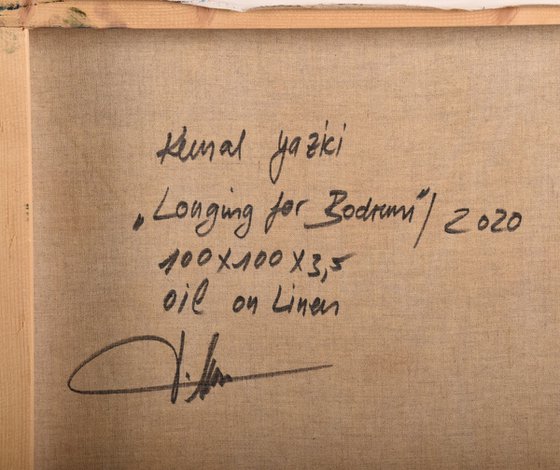 Kemal Yaziki
„Longing for Bodrum"/ 2020
100x100x3,5
Oil on Linen